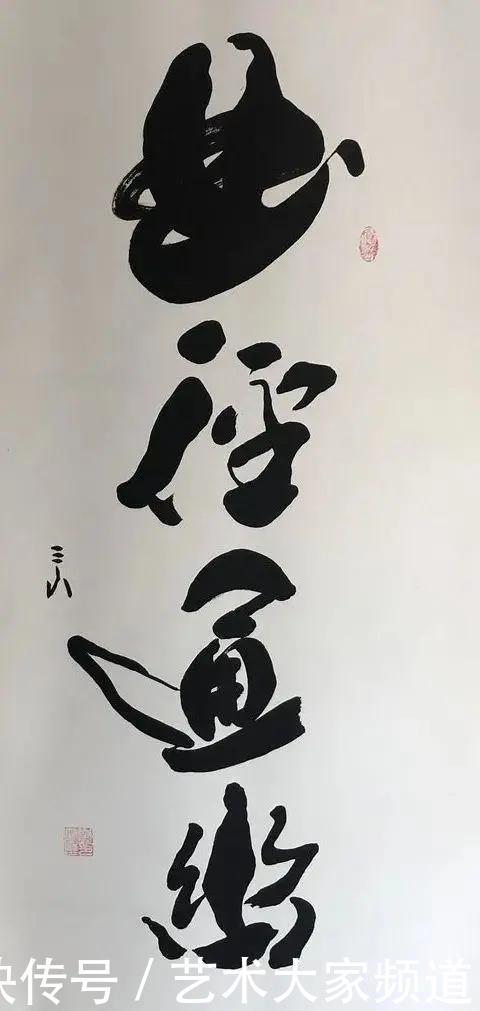 曲径通幽
三山
快传号 / 艺术大家频道